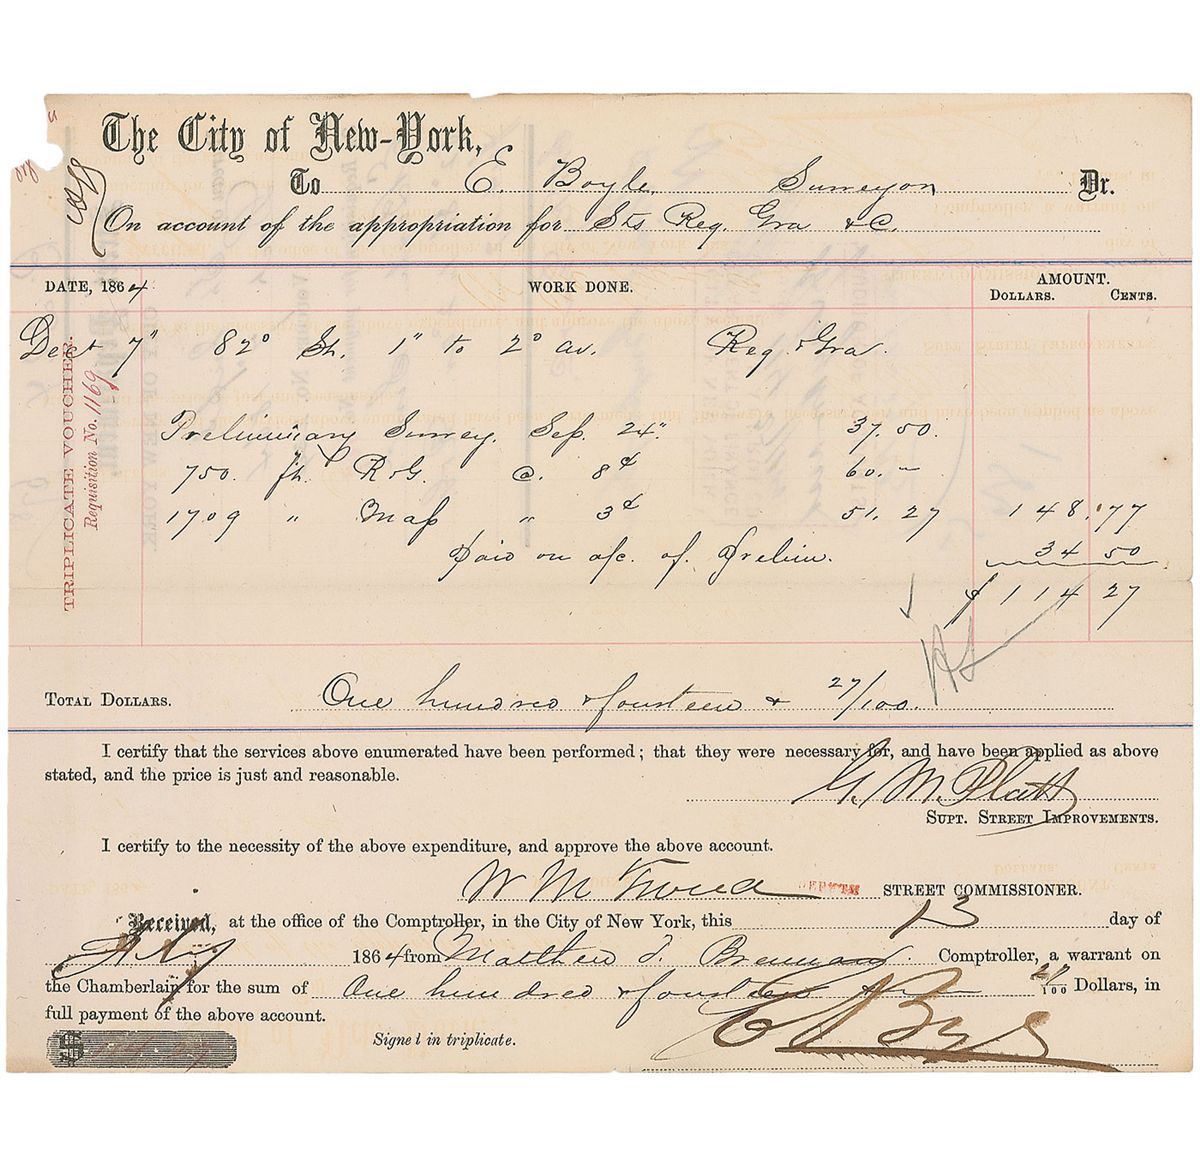 The City of New-York,
To E. Boyle, Surveyor Dr.
On account of the appropriation for Sts Reg. Gra &c.
DATE, 1864 WORK DONE. AMOUNT.
DOLLARS. CENTS.
7" 82d St. 1st to 2d av. Reg. & Gra.
Preliminary Survey. Sep. 24". 37.50.
750. ft. R&G. @. 8¢ 60.–
1709 " Map " 3¢ 51.27 148.77
Paid on a/c. of. Prelim. 34 50
$ 114 27
TRIPLICATE VOUCHER.
Requisition No. 1169
TOTAL DOLLARS. One hundred & fourteen & 27/100.
I certify that the services above enumerated have been performed; that they were necessary for, and have been applied as above
stated, and the price is just and reasonable.
G. M. Platt
SUPT. STREET IMPROVEMENTS.
I certify to the necessity of the above expenditure, and approve the above account.
Wm M Tweed DEPUTY STREET COMMISSIONER.
Received, at the office of the Comptroller, in the City of New York, this 13 day of
1864 from Matthew T. Brennan Comptroller, a warrant on
the Chamberlain for the sum of One hundred & fourteen 27/100 Dollars, in
full payment of the above account.
Signed in triplicate.
E Boyle